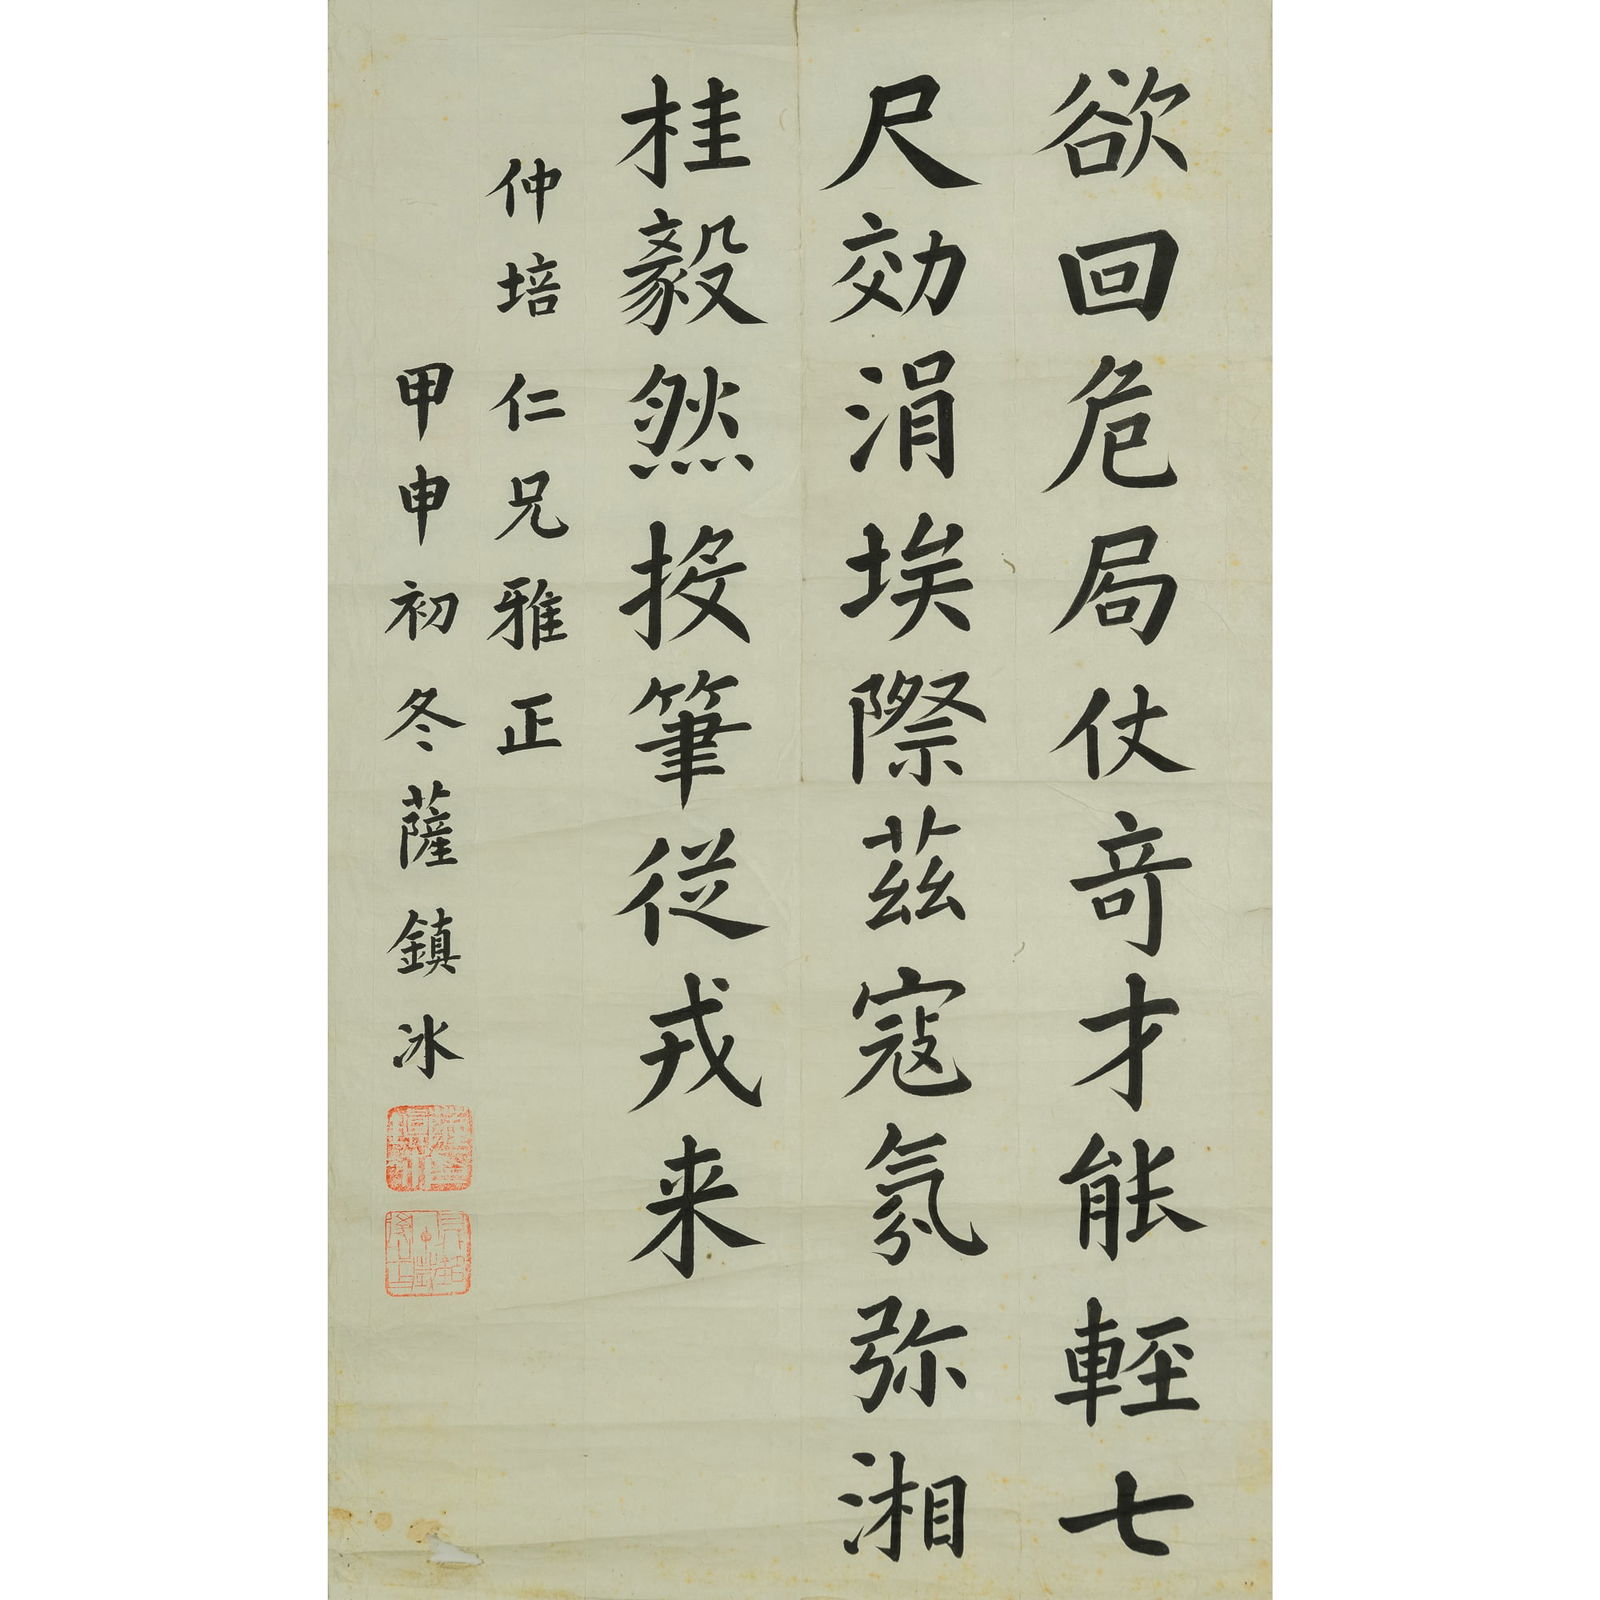 欲回危局仗奇才能輕七
尺効涓埃際茲寇氛弥湘
桂毅然投筆從戎来
仲培仁兄雅正
甲申初冬薩鎮冰